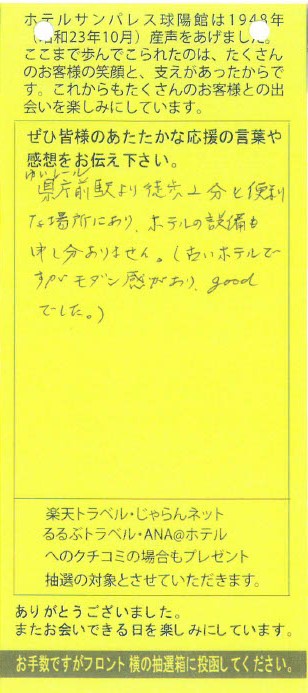 ホテルサンパレス球陽館は1948年
(昭和23年10月)産声をあげました。
ここまで歩んでこられたのは、たくさん
のお客様の笑顔と、支えがあったからで
す。これからもたくさんのお客様との出
会いを楽しみにしています。
ぜひ皆様のあたたかな応援の言葉や
感想をお伝え下さい。
ゆいレール
県庁前駅より徒歩2分と便利
な場所にあり、ホテルの設備も
申し分ありません。(古いホテルで
すがモダン感があり、good
でした。)
楽天トラベル・じゃらんネット
るるぶトラベル・ANA@ホテル
へのクチコミの場合もプレゼント
抽選の対象とさせていただきます。
ありがとうございました。
またお会いできる日を楽しみにしています。
お手数ですがフロント横の抽選箱に投函してください。